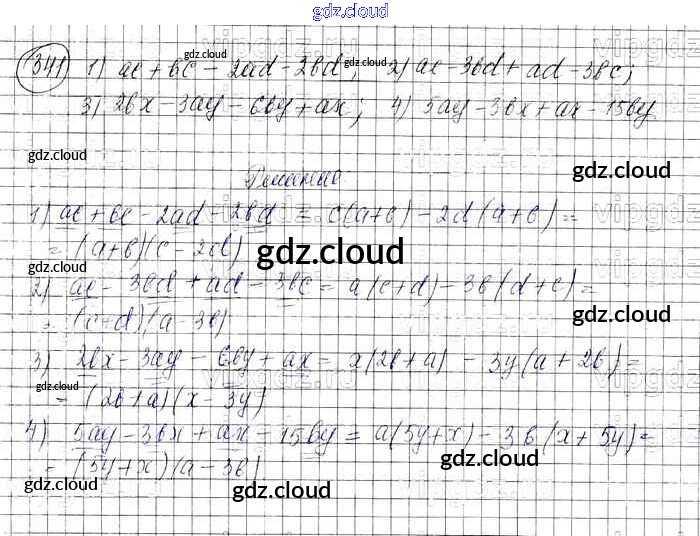 gdz.cloud
341) 1) ac + bc - 2ad - 2bd; 2) ac - 3bd + ad - 3bc;
3) 2bx - 3ay - 6by + ax; 4) 5ay - 3bx + ax - 15by
gdz.cloud
gdz.cloud
gdz.cloud
gdz.cloud
Решение
1) ac + bc - 2ad - 2bd = c(a+b) - 2d(a+b) =
= (a+b)(c - 2d)
gdz.cloud
2) ac - 3bd + ad - 3bc = a(c+d) - 3b(d+c) =
= (c+d)(a - 3b)
gdz.cloud
gdz.cloud
3) 2bx - 3ay - 6by + ax = x(2b + a) - 3y(a + 2b) =
= (2b + a)(x - 3y)
gdz.cloud
4) 5ay - 3bx + ax - 15by = a(5y+x) - 3b(x + 5y) =
= (5y + x)(a - 3b)
gdz.cloud
gdz.cloud